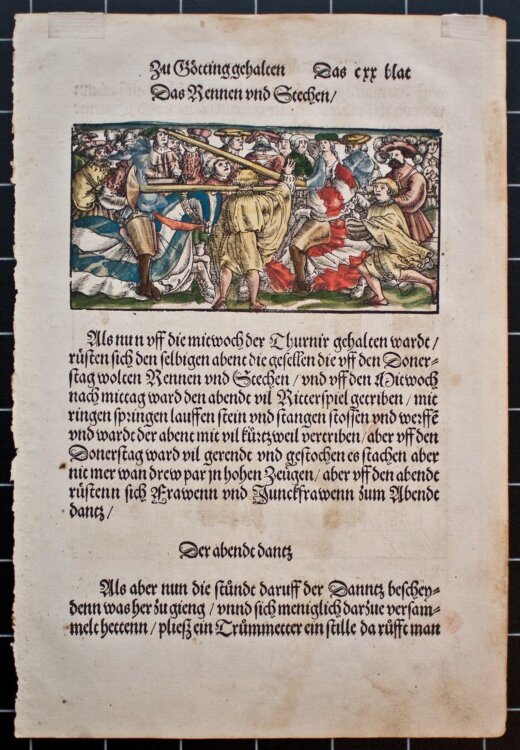 Zu Götting gehalten Das cxx blat
Das Rennen vnd Stechen/
Als nun vff die mitwoch der Thurnir gehalten wardt /
rüsten sich den selbigen abent die gesellen die vff den Doner=
stag wolten Rennen vnd Stechen / vnd vff den Mitwoch
nach mittag ward den abendt vil Ritterspiel getriben / mit
ringen springen lauffen stein vnd stangen stossen vnd werffē
vnd wardt der abent mit vil kürtzweil vertriben / aber vff den
Donerstag ward vil gerendt vnd gestochen es stachen aber
nit mer wan drew par jn hohen Zeügen / aber vff den abendt
rüstenn sich Frawenn vnd Junckfrawenn zum Abendt
dantz /
Der abendt dantz
Als aber nun die stündt daruff der Danntz beschey=
denn was her zu gieng / vnnd sich meniglich darzüe versam=
melt hettenn / pließ ein Trümmetter ein stille da rüfft man